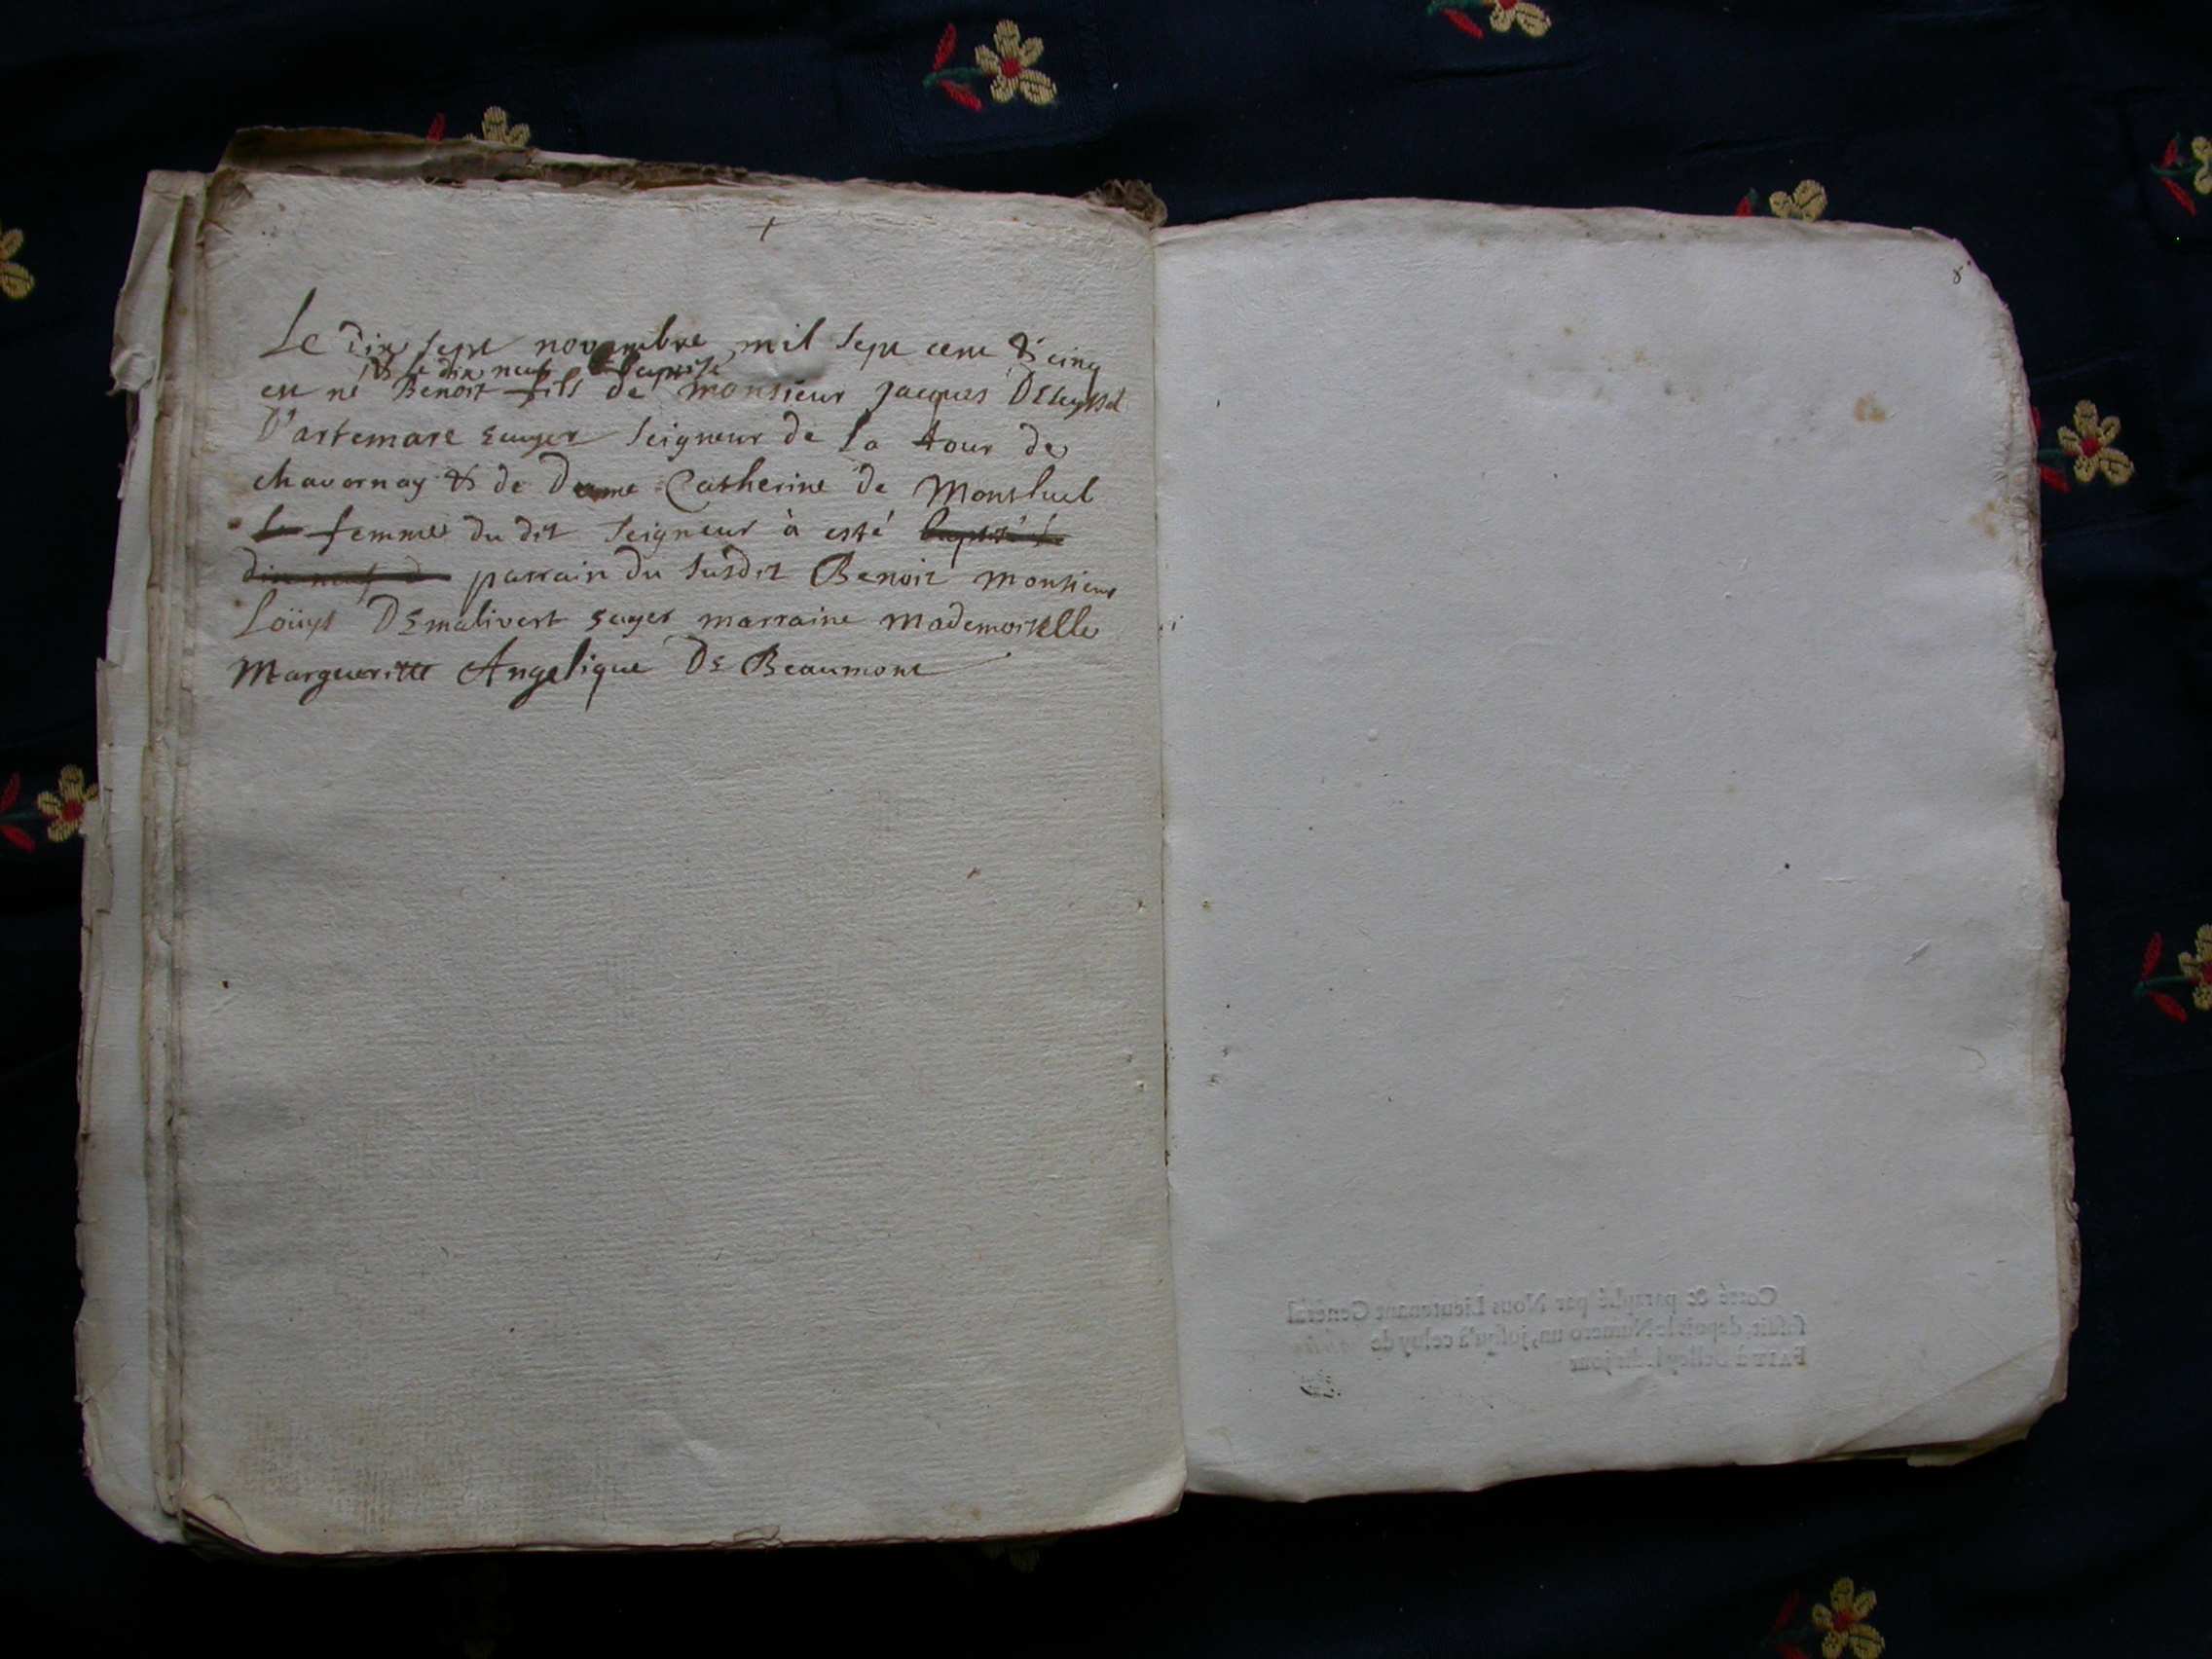 Le dix sept novembre mil sept cent & cinq
& le dix neuf baptisé
est né Benoit fils de monsieur jacques DEseyssel
D'artemare Ecuyer seigneur de la tour de
chavornay & de Dame Catherine de Montluel
la femme du dit seigneur à esté baptisé le
dix neuf parrain du susdit Benoit monsieur
Loüys DEmalivert Ecuyer marraine mademoiselle
Margueritte Angelique DE Beaumont
8
Cotté & paraphé par Nous Lieutenant General
susdit, depuis le Numero un, jusqu'à celuy de
FAIT à Belley lesdits jour